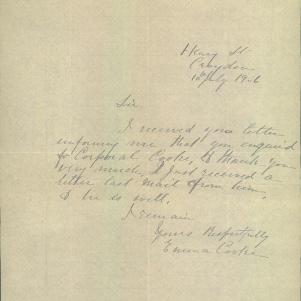 1 Henry St
Croydon
12 July 1916
Sir.
I received your letter
informing me that you enquired
for Corporal Cooke, I thank you
very much, I just received a
letter last mail from him,
& he is well.
I remain
Yours Respectfully
Emma Cooke